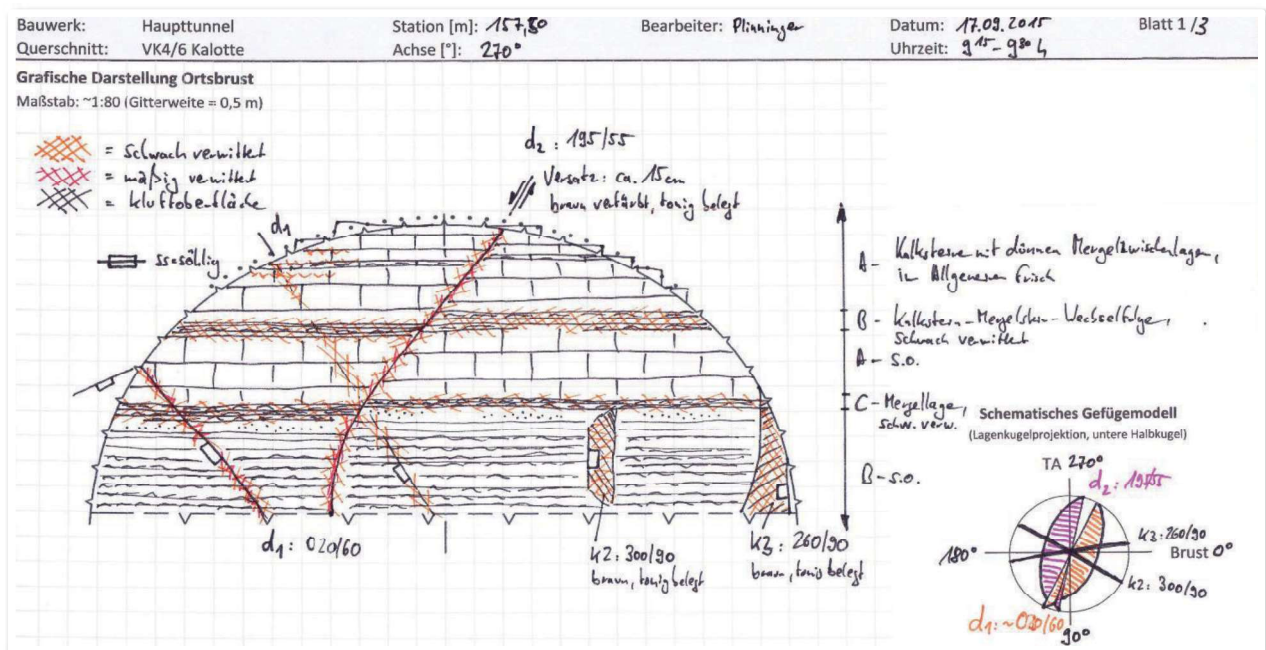 Bauwerk: Haupttunnel Station [m]: 157,80 Bearbeiter: Plinninger Datum: 17.09.2015 Blatt 1/3
Querschnitt: VK4/6 Kalotte Achse [°]: 270° Uhrzeit: 9¹⁵ - 9³⁰ h
Grafische Darstellung Ortsbrust
Maßstab: ~1:80 (Gitterweite = 0,5 m)
= schwach verwittert
= mäßig verwittert
= kluftoberfläche
d₂: 195/55
Versatz: ca. 15cm
braun verfärbt, tonig belegt
d1
ss=söhlig
A - Kalksteine mit dünnen Mergelzwischenlagen,
im Allgemeinen frisch
B - Kalkstein-Mergelstein-Wechselfolge,
schwach verwittert
A - s.o.
C - Mergellage,
schw. verw.
B - s.o.
d₁: 020/60
k2: 300/90
braun, tonig belegt
k3: 260/90
braun, tonig belegt
Schematisches Gefügemodell
(Lagenkugelprojektion, untere Halbkugel)
TA 270°
d₂: 195/55
k3: 260/90
180°
Brust 0°
k2: 300/90
d₁: ~020/60
90°